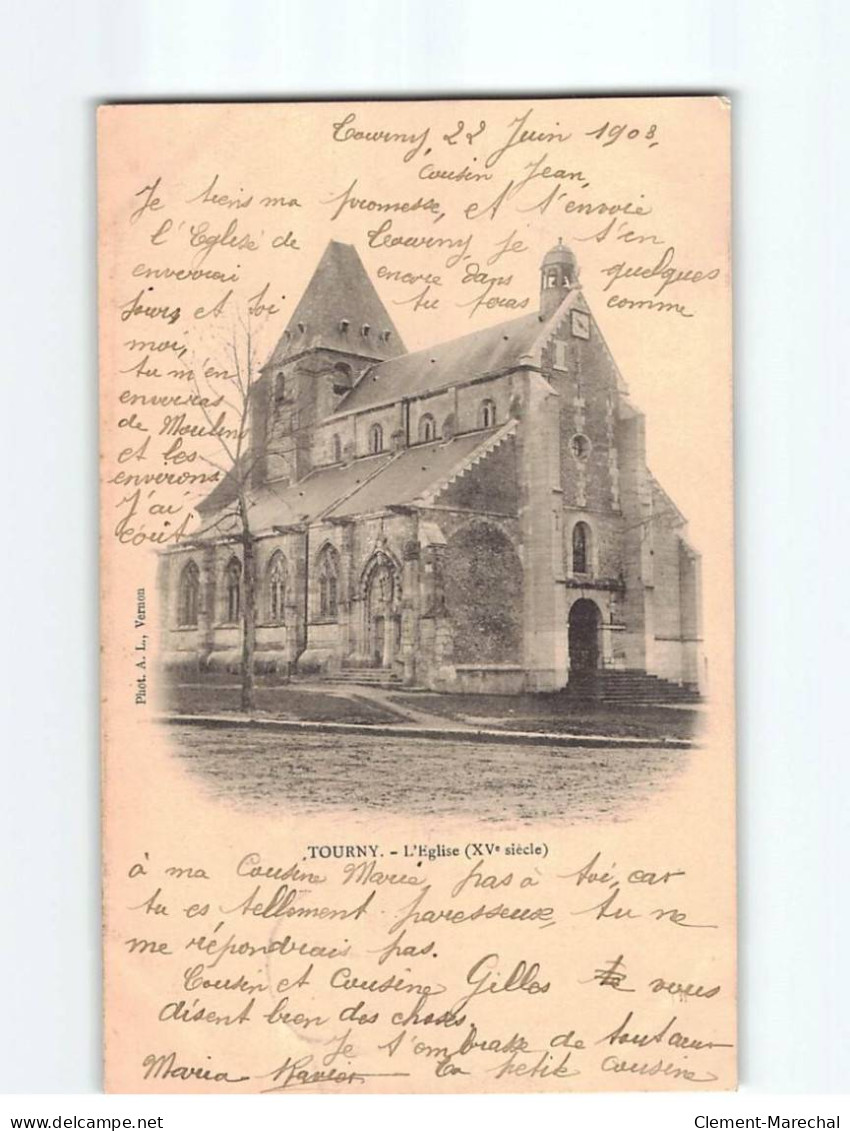 Tourny, 22 Juin 1903,
Cousin Jean,
Je tiens ma promesse, et t'envoie
l'Eglise de Tourny je t'en
enverrai encore dans quelques
jours et toi tu feras comme
moi,
tu m'en
enverras
de Moulins
et les
environs
J'ai
écrit
Phot. A. L., Vernon
TOURNY. - L'Eglise (XVe siècle)
à ma Cousine Marie pas à toi, car
tu es tellement paresseuse, tu ne
me répondrais pas.
Cousin et Cousine Gilles te vous
disent bien des choses.
Je t'embrasse de tout cœur
Maria La petite cousine
Clement-Marechal